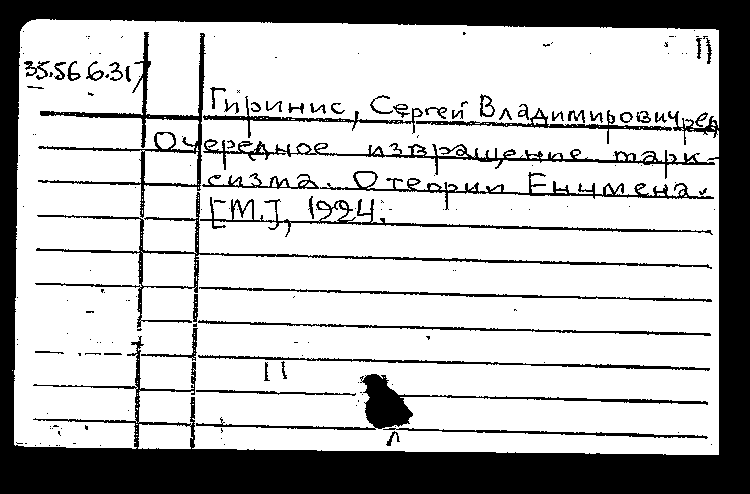 П
35.56.6.317
Гиринис, Сергей Владимирович, ред.
Очередное извращение марк-
сизма. О теории Енчмена.
[М.], 1924.